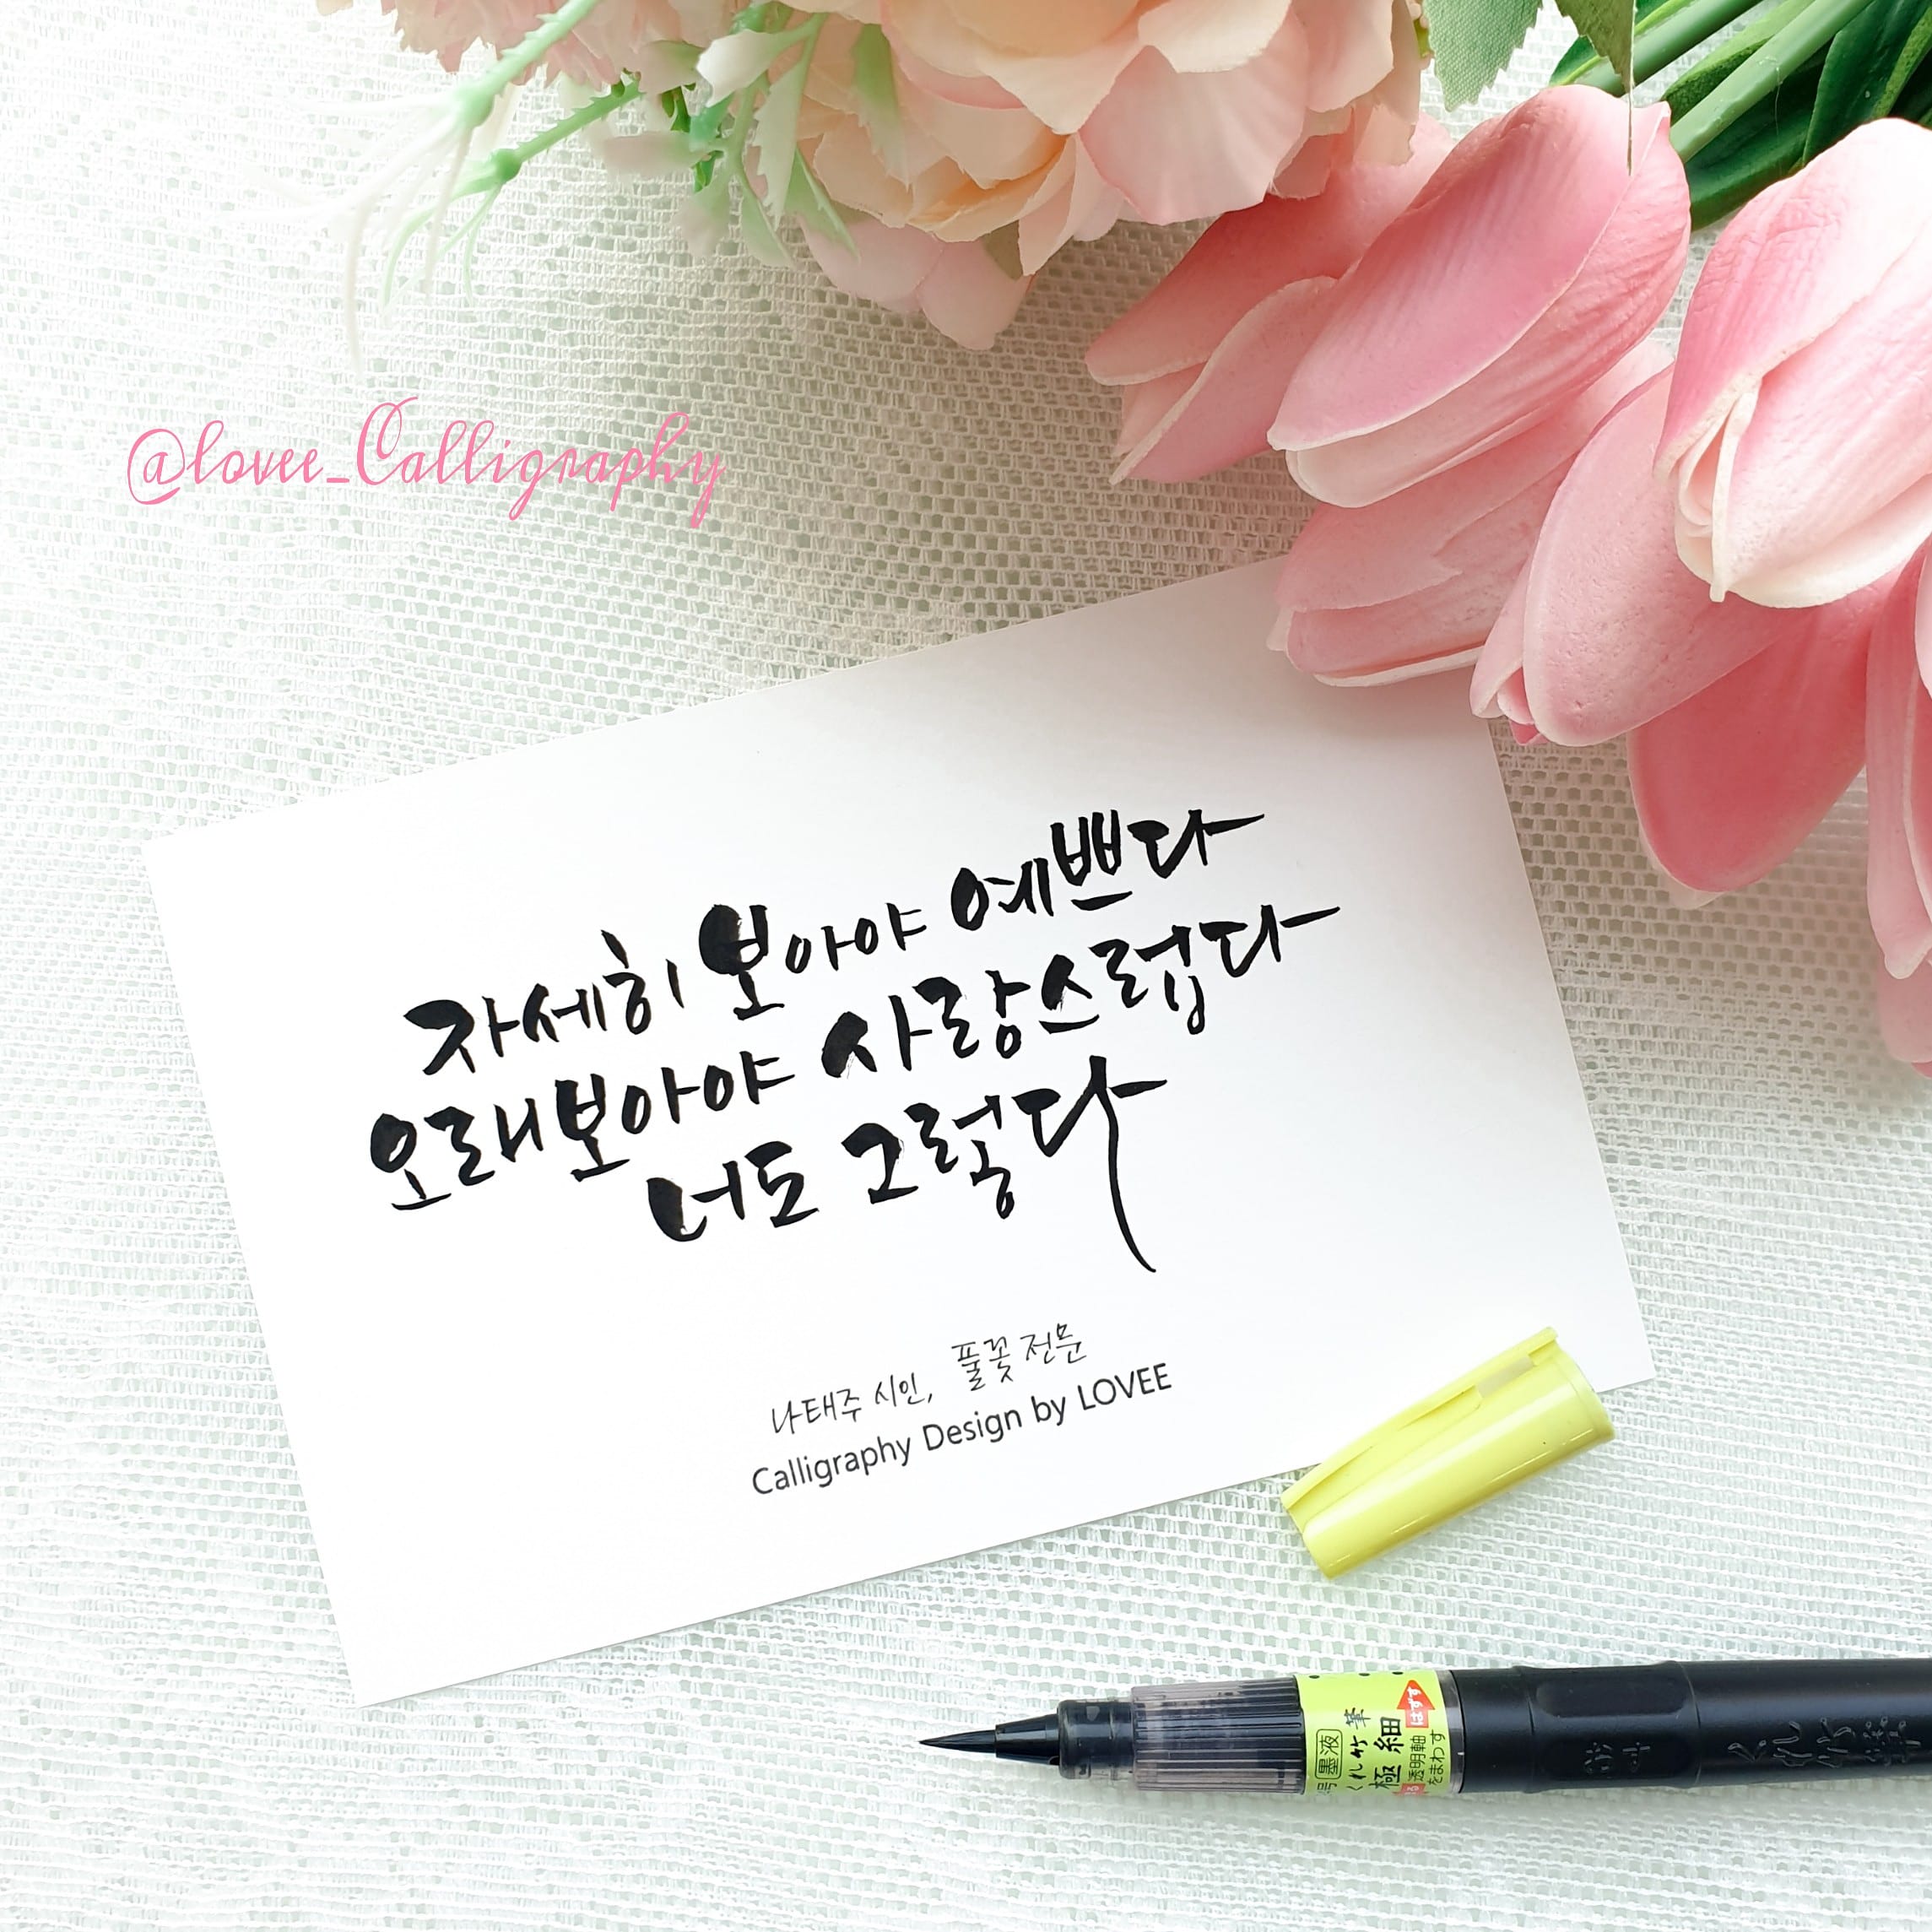 @lovee_Calligraphy
자세히 보아야 예쁘다
오래보아야 사랑스럽다
너도 그렇다
나태주 시인, 풀꽃 전문
Calligraphy Design by LOVEE
墨液
くれ竹 筆
極細
はずす
透明軸
をまわす